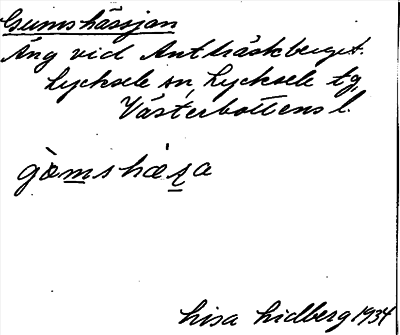 Gumshässjan
Äng vid Antträskberget.
Lycksele sn, Lycksele tg,
Västerbottens l.
gòmshæsa
Lisa Lidberg 1934